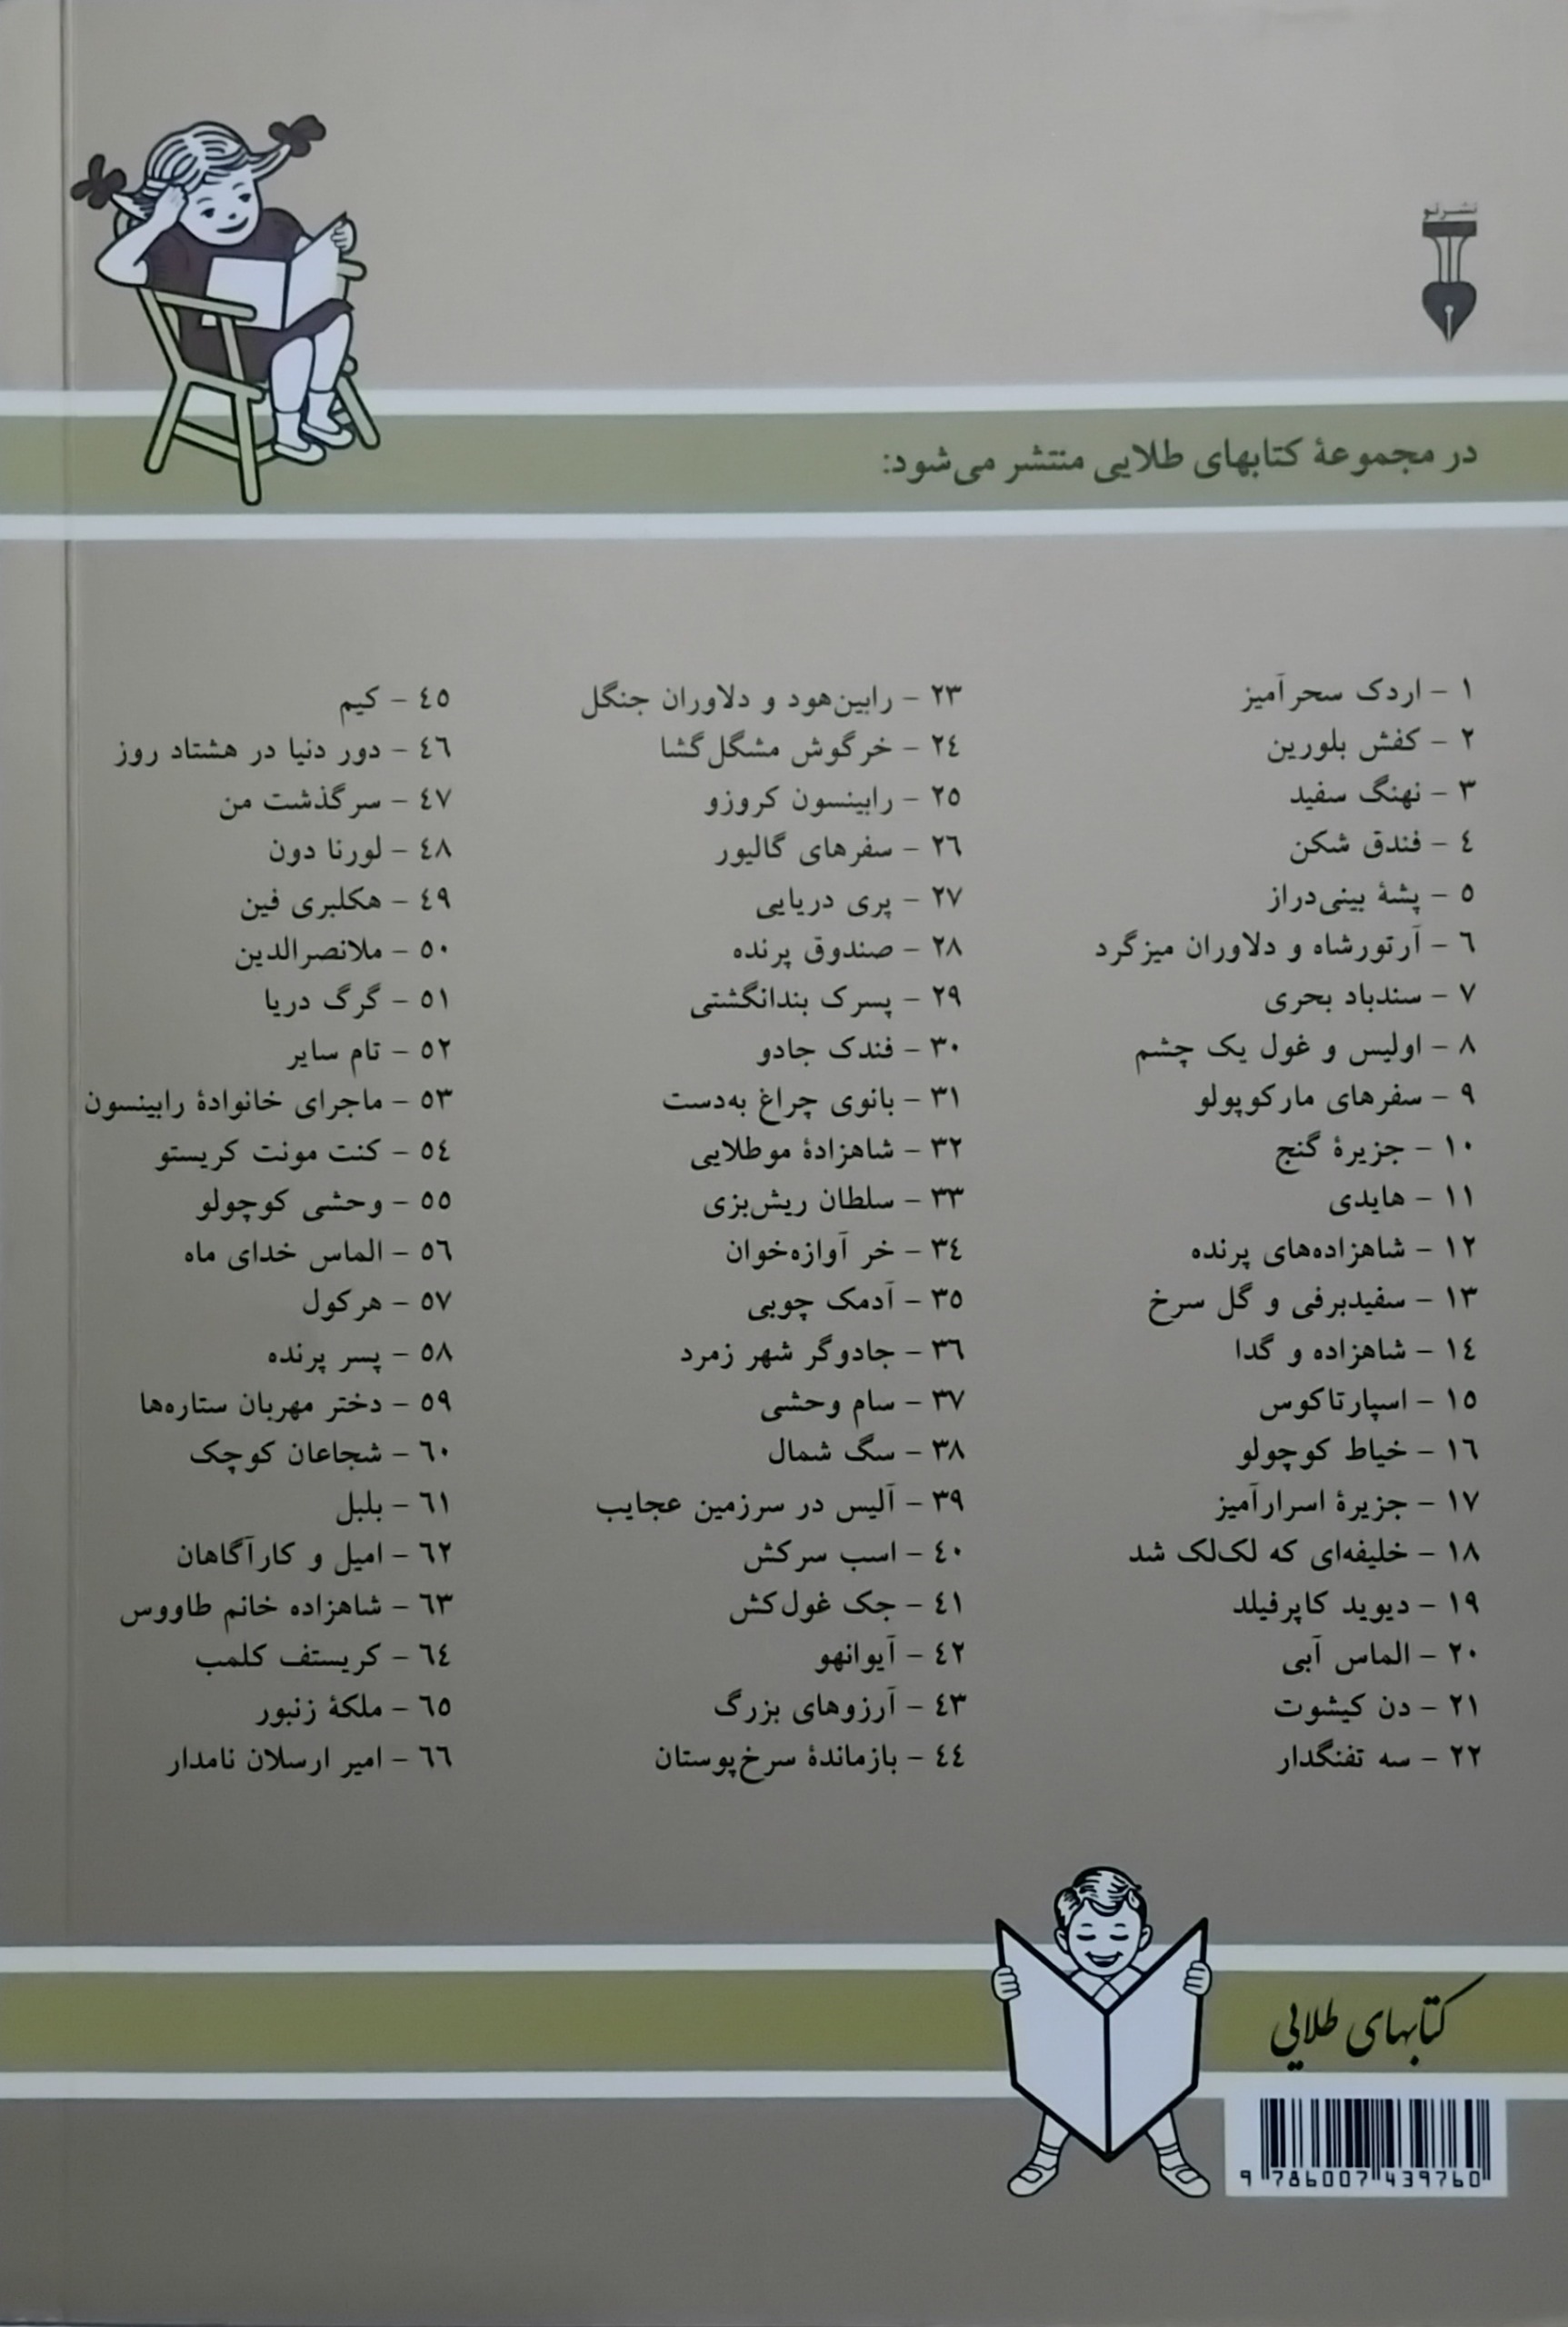 نشرنو
در مجموعهٔ کتابهای طلایی منتشر می‌شود:
۱ - اردک سحرآمیز
۲ - کفش بلورین
۳ - نهنگ سفید
٤ - فندق شکن
٥ - پشهٔ بینی‌دراز
٦ - آرتورشاه و دلاوران میزگرد
۷ - سندباد بحری
۸ - اولیس و غول یک چشم
۹ - سفرهای مارکوپولو
۱۰ - جزیرهٔ گنج
۱۱ - هایدی
۱۲ - شاهزاده‌های پرنده
۱۳ - سفیدبرفی و گل سرخ
۱٤ - شاهزاده و گدا
۱٥ - اسپارتاکوس
۱٦ - خیاط کوچولو
۱۷ - جزیرهٔ اسرارآمیز
۱۸ - خلیفه‌ای که لک‌لک شد
۱۹ - دیوید کاپرفیلد
۲۰ - الماس آبی
۲۱ - دن کیشوت
۲۲ - سه تفنگدار
۲۳ - رابین‌هود و دلاوران جنگل
۲٤ - خرگوش مشگل‌گشا
۲٥ - رابینسون کروزو
۲٦ - سفرهای گالیور
۲۷ - پری دریایی
۲۸ - صندوق پرنده
۲۹ - پسرک بندانگشتی
۳۰ - فندک جادو
۳۱ - بانوی چراغ به‌دست
۳۲ - شاهزادهٔ موطلایی
۳۳ - سلطان ریش‌بزی
۳٤ - خر آوازه‌خوان
۳٥ - آدمک چوبی
۳٦ - جادوگر شهر زمرد
۳۷ - سام وحشی
۳۸ - سگ شمال
۳۹ - آلیس در سرزمین عجایب
٤۰ - اسب سرکش
٤۱ - جک غول‌کش
٤۲ - آیوانهو
٤۳ - آرزوهای بزرگ
٤٤ - بازماندهٔ سرخ‌پوستان
٤٥ - کیم
٤٦ - دور دنیا در هشتاد روز
٤۷ - سرگذشت من
٤۸ - لورنا دون
٤۹ - هکلبری فین
٥۰ - ملانصرالدین
٥۱ - گرگ دریا
٥۲ - تام سایر
٥۳ - ماجرای خانوادهٔ رابینسون
٥٤ - کنت مونت کریستو
٥٥ - وحشی کوچولو
٥٦ - الماس خدای ماه
٥۷ - هرکول
٥۸ - پسر پرنده
٥۹ - دختر مهربان ستاره‌ها
٦۰ - شجاعان کوچک
٦۱ - بلبل
٦۲ - امیل و کارآگاهان
٦۳ - شاهزاده خانم طاووس
٦٤ - کریستف کلمب
٦٥ - ملکهٔ زنبور
٦٦ - امیر ارسلان نامدار
کتابهای طلایی
9 786007 439760